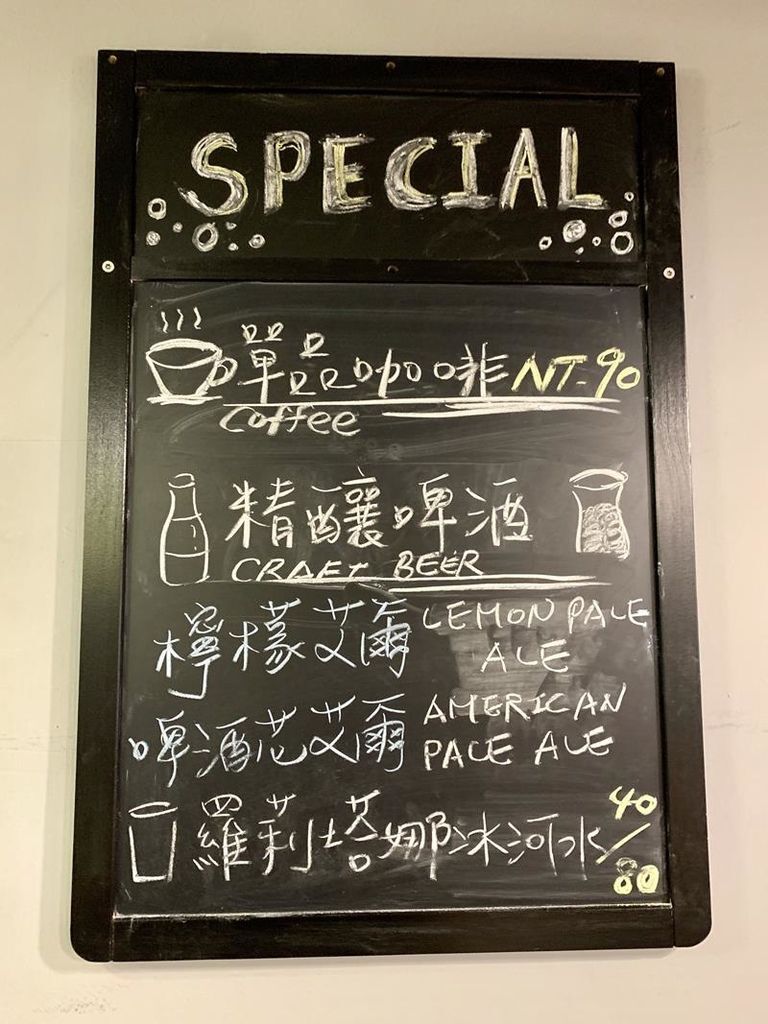 SPECIAL
單品咖啡 NT-90
Coffee
精釀啤酒
CRAFT BEER
檸檬艾爾 LEMON PALE
ALE
啤酒花艾爾 AMERICAN
PALE ALE
羅莉塔娜冰河水 40/80